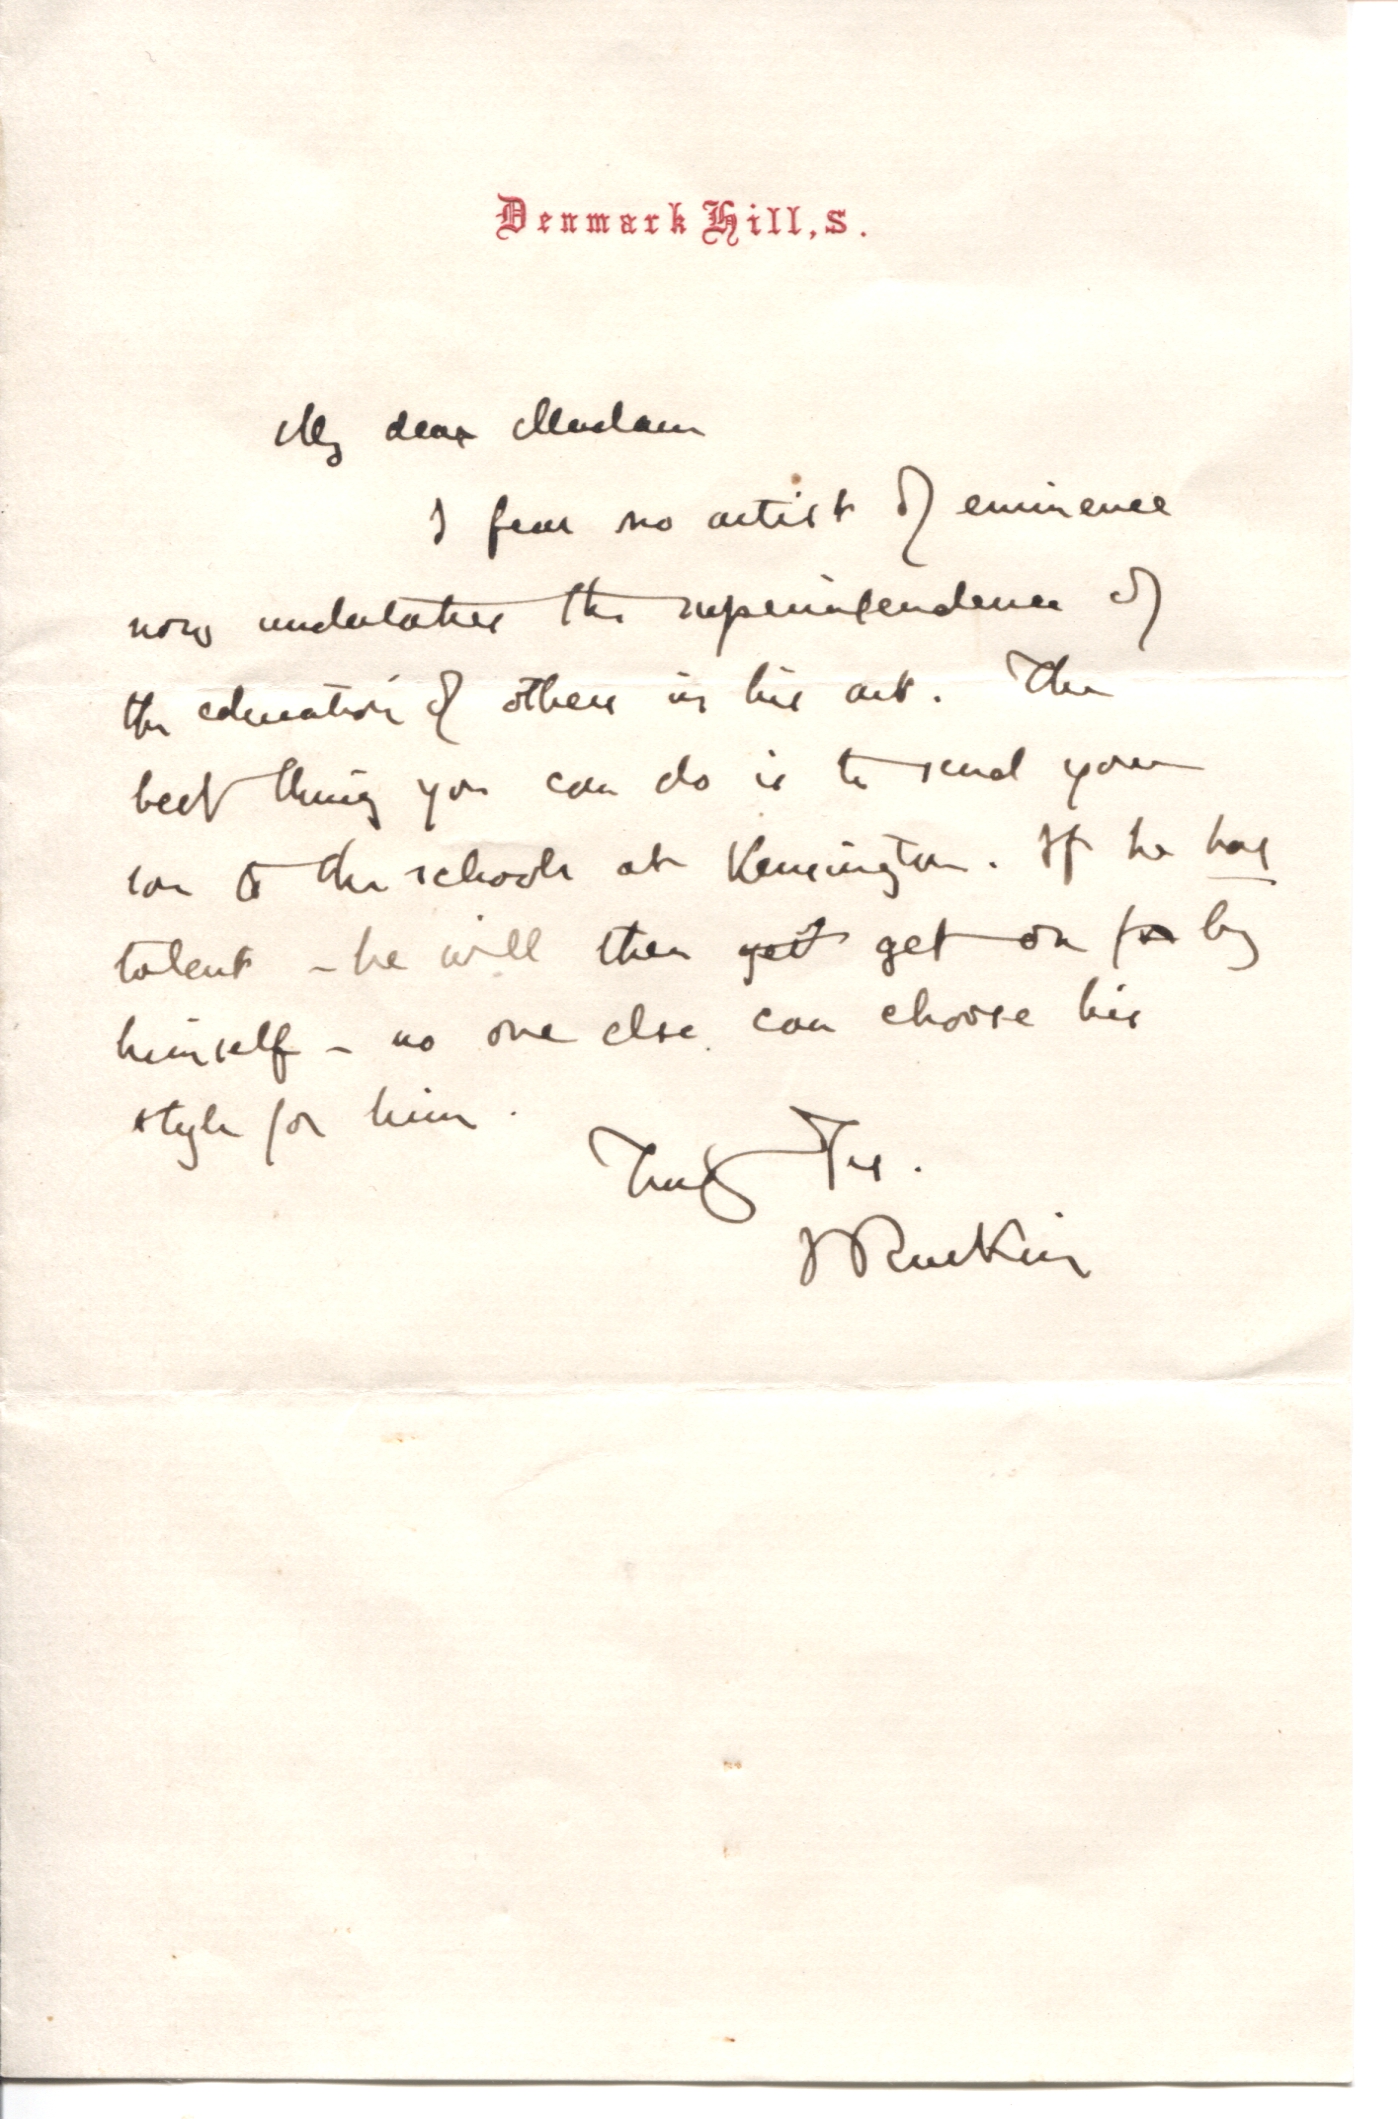 Denmark Hill, S.
My dear Madam
I fear no artist of eminence
now undertakes the superintendence of
the education of others in his art. The
best thing you can do is to send your
son to the schools at Kensington. If he has
talent - he will then get on by
himself - no one else can choose his
style for him.
Truly Yrs.
J Ruskin